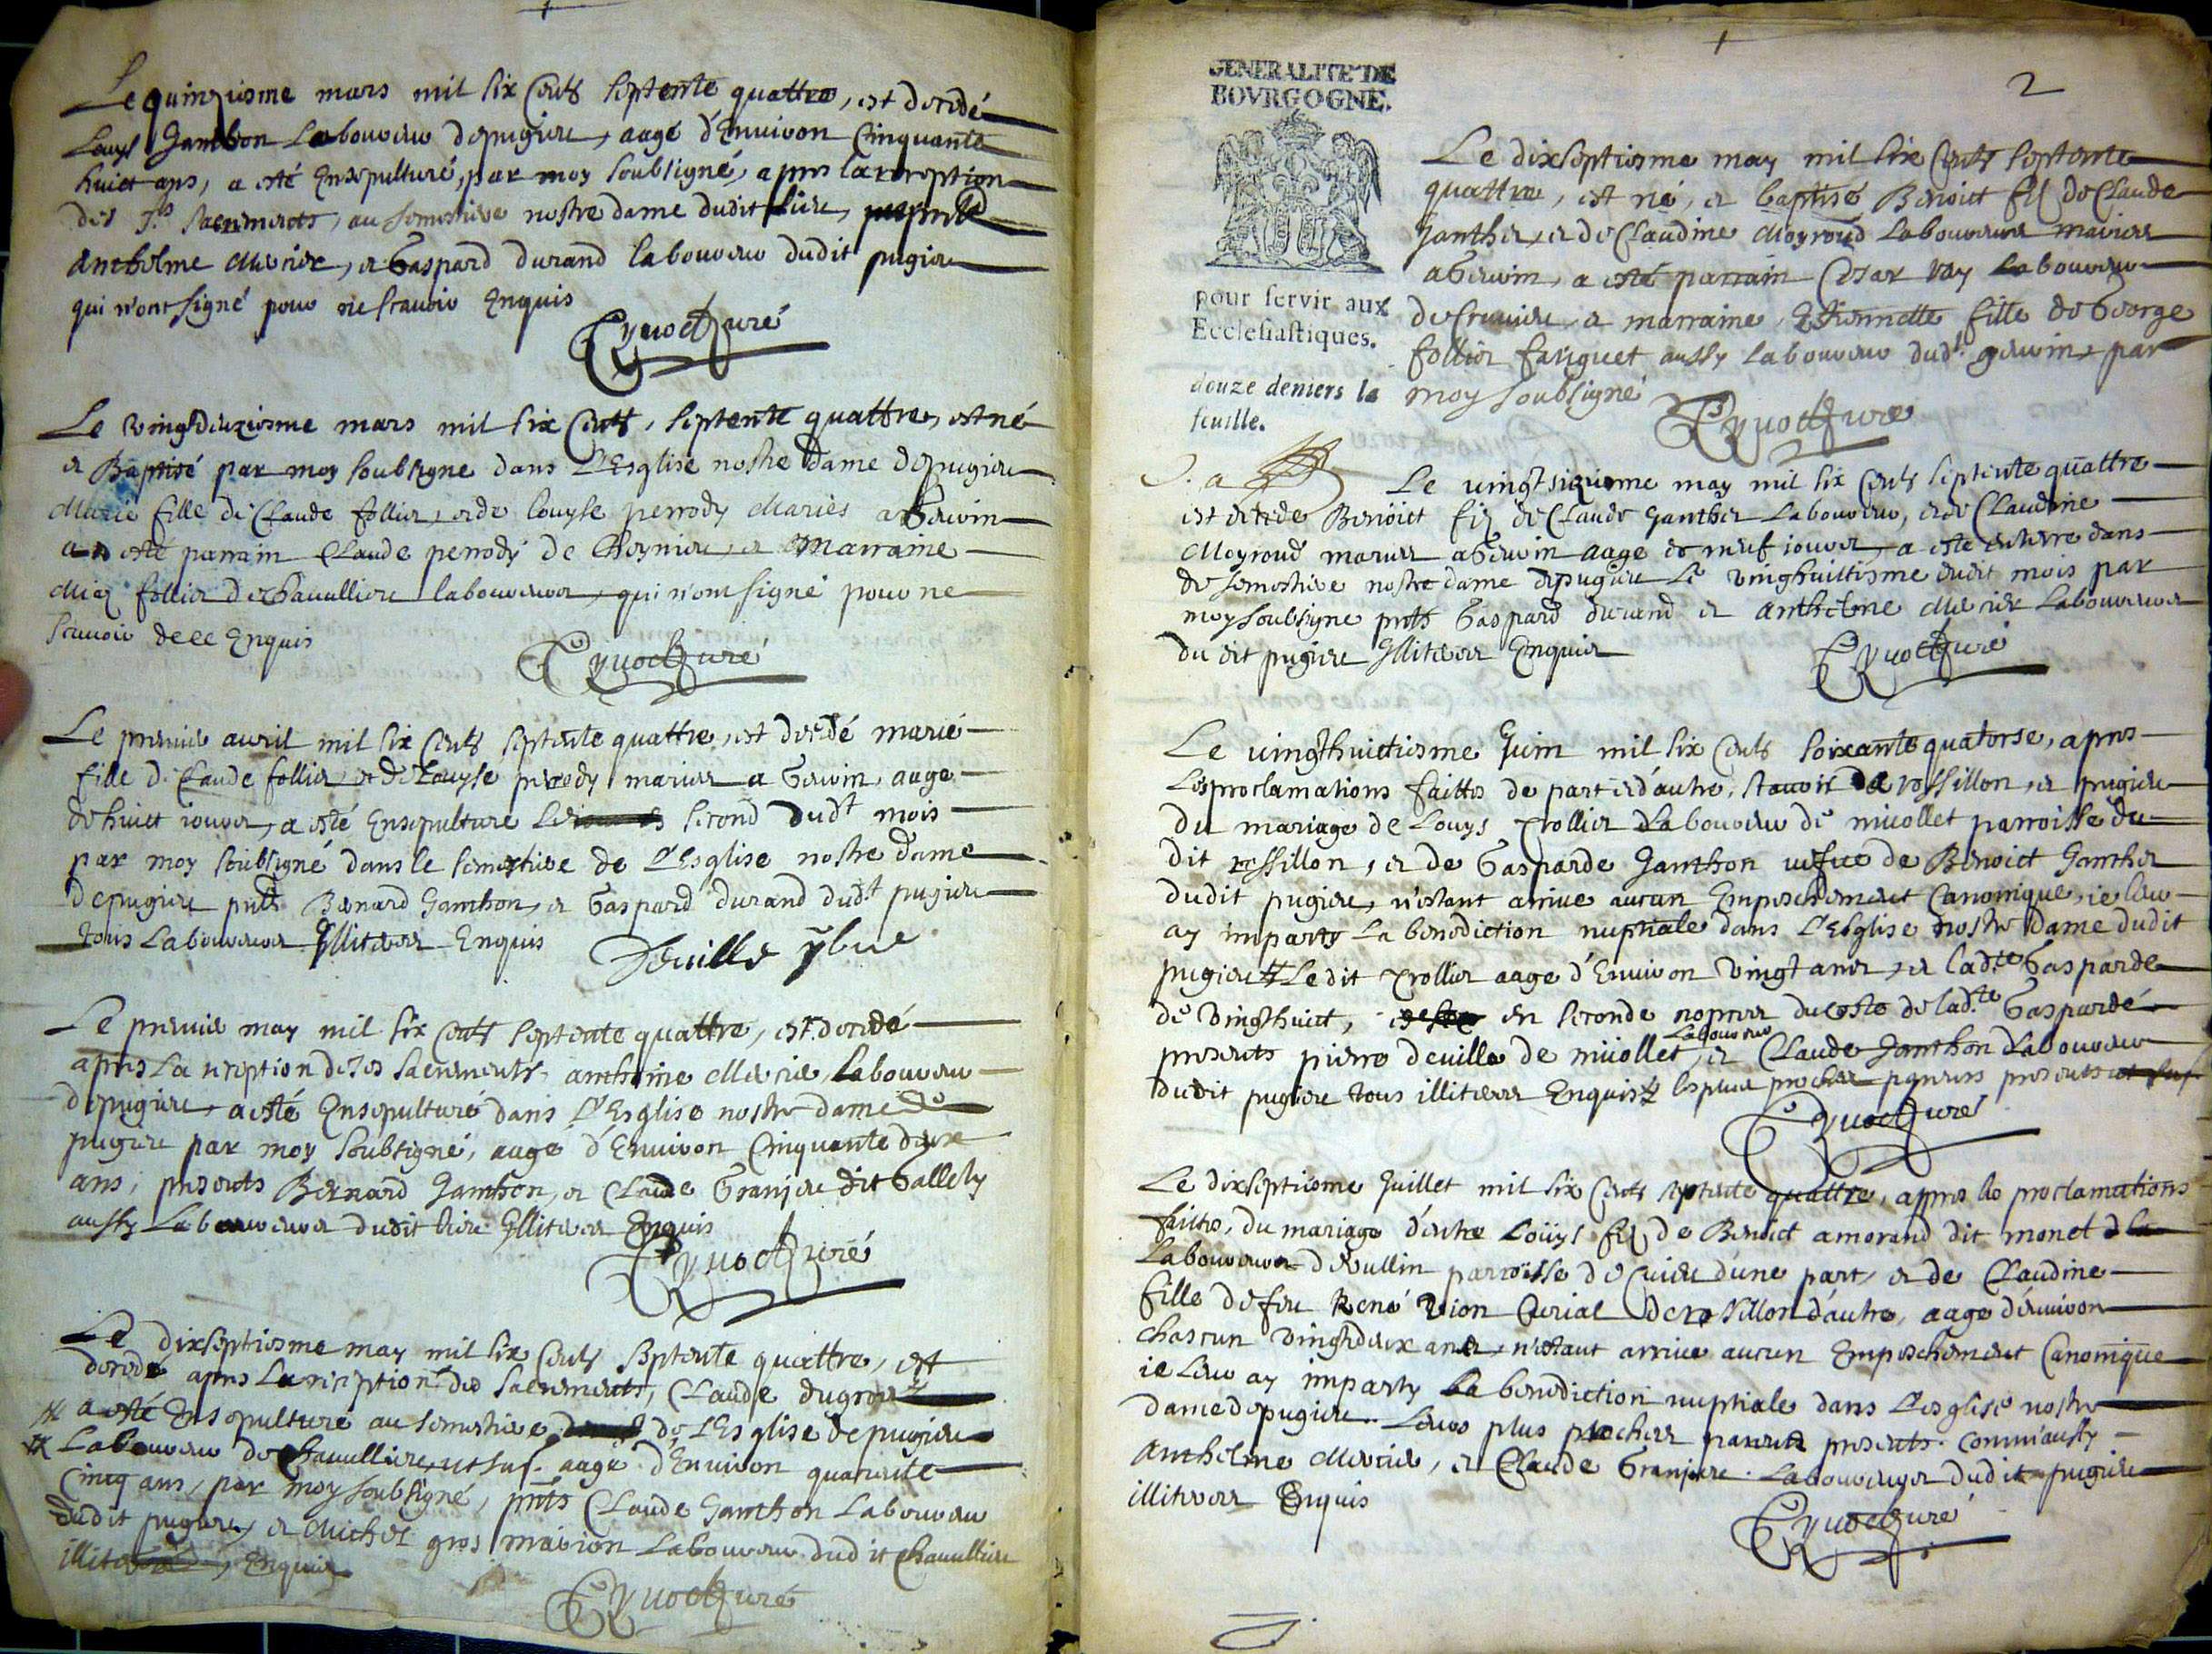 Le quinziesme mars mil six cents septente quattre, est decedé
Louys Janthon Laboureur de pugieu, aagé d'Environ Cinquante
huict ans, a esté Ensepulturé, par moy soubsigné, apres la reception
des Sts sacrements, au semestiere nostre dame dudit lieu, present
Anthelme Mercier, et Gaspard durand laboureur dudit pugieu
qui n'ont signé pour ne scavoir Enquis
Cyvoct Curé
Le vingtdeuziesme mars mil six cents, septente quattre, est né
et Baptisé par moy soubsigne dans L'Esglise nostre dame de pugieu
Marie fille de Claude follier, et de louyse perrody Mariés a Gevrin
a esté parrain Claude perrody de Cheynieu et Marraine
follier de Chavullieu laboureurs, qui n'ont signé pour ne
scavoir de ce Enquis
Cyvoct Curé
Le premier avril mil six cents septente quattre, est decedé marie
fille de Claude follier et de Louyse perrody mariez a Gevrin, aage
de huict jours, a esté Ensepulture le second dudt mois
par moy soubsigné dans le semestiere de L'Esglise nostre dame
de pugieu pnts Bernard Janthon, et Gaspard durand dudt pugieu
tous Laboureurs Illiterez Enquis
Le premier may mil six cents septente quattre, est decedé
apres La reception de ses sacrements anthelme Mercier, laboureur
de pugieu, a esté Ensepulturé dans L'Esglise nostre dame de
pugieu par moy soubsigné, aagé d'Environ Cinquante deux
ans, presents Bernard Janthon, et Claude Granjeu dit Gallety
aussy Laboureurs dudit lieu Illiterez Enquis
Cyvoct Curé
Le dixseptiesme may mil six cents septente quattre, est
decedé apres La reception des sacrements, Claude dugros
a esté Ensepulturé au semestiere de L'Esglise de pugieu
Laboureur de Chavullieu, ut sup. aagé d'Environ quarente
Cincq ans, par moy soubsigné, pnts Claude Janthon Laboureur
dudit pugieu, et Michel gros marion Laboureur dudit Chavullieu
Enquis
Cyvoct Curé
2
GENERALITE DE
BOVRGOGNE.
pour servir aux
Ecclesiastiques.
douze deniers la
feuille.
Le dixseptiesme may mil six cents septente
quattre, est né, et baptisé Benoict fils de Claude
Janther, et de Claudine Moyroud Laboureurs mariez
a Gevrin, a esté parrain Cesar Ray Laboureur
de Cruvieu, et marraine, Estiennette fille de George
follier fauguet aussy laboureur dudt gevrin, par
moy soubsigné
Cyvoct Curé
Le vingtsiziesme may mil six cents septente quattre
est decede Benoict fils de Claude Janther Laboureur, et de Claudine
Moyroud mariez a Gevrin aage de neuf jours, a esté enterre dans
de semestiere nostre dame de pugieu Le vinghuictiesme dudit mois par
moy soubsigne pnts Gaspard durand et anthelme Mercier Laboureurs
du dit pugieu Illiterez Enquis
Cyvoct Curé
Le vingthuictiesme Juin mil six cents soixante quatorse, apres
Les proclamations faittes de part et d'autre, scavoir de rossillon, et pugieu
du mariage de Louys Trollier Laboureur de miollet parroisse du
dit rossillon, et de Gasparde Janthon vefve de Benoict Janther
dudit pugieu, n'estant arrive aucun Empeschement Canonique, je leur
ay imparty La benediction nuptiale dans L'Esglise nostre dame dudit
pugieu Le dit Trollier aage d'Environ vingt ans, et ladte Gasparde
de vingthuict, en seconde nopces du costé de ladte Gasparde
presents pierre deville de miollet Laboureur, et Claude Janthon Laboureur
dudit pugieu tous illiterez Enquis les plus proches parens presents
Cyvoct Curé
Le dixseptiesme Juillet mil six cents septente quattre, apres les proclamations
faittes, du mariage d'entre Louys fils de Benoict amorand dit monet
Laboureur de Rullin parroisse de Cuzieu d'une part, et de Claudine
fille de feu René Vion Curial de rossillon d'autre, aage d'environ
chascun vingtdeux ans, n'estant arrive aucun Empeschement Canonique
je leur ay imparty La benediction nuptiale dans L'esglise nostre
dame de pugieu. Leurs plus proches parents presents. Comm'aussy
Anthelme Mercier, et Claude Granjeu. Laboureurs dudit pugieu
illiterez Enquis
Cyvoct Curé